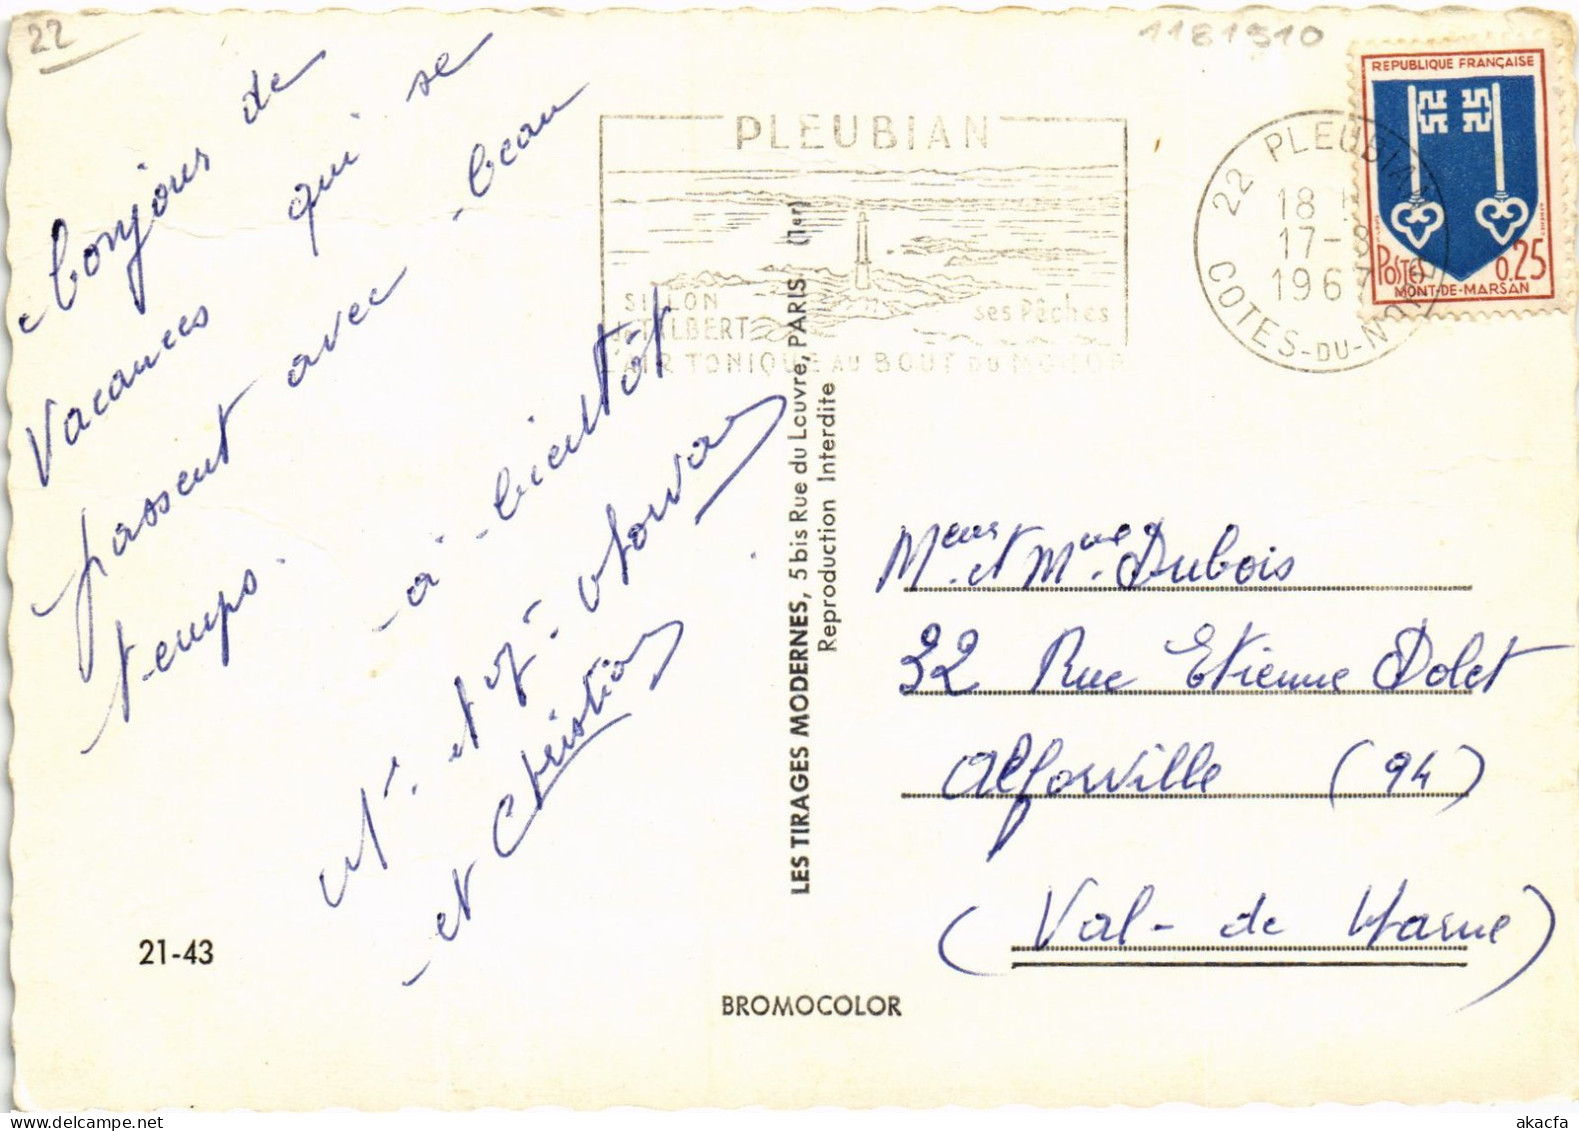 22
1181510
REPUBLIQUE FRANÇAISE
POSTES 0.25
MONT-DE-MARSAN
22 PLEUBIAN
18 H
17-8
1967
COTES-DU-NORD
PLEUBIAN
SILLON
de TALBERT
ses Pêches
L'AIR TONIQUE AU BOUT DU MONDE
bonjour de
Vacances qui se
passent avec beau
temps.
- à bientôt
Mr. et Me.
et Christian
LES TIRAGES MODERNES, 5 bis Rue du Louvre, PARIS (1er)
Reproduction Interdite
Meur et Mme. Dubois
32 Rue Etienne Dolet
Alforville (94)
(Val-de Marne)
21-43
BROMOCOLOR
akacfa